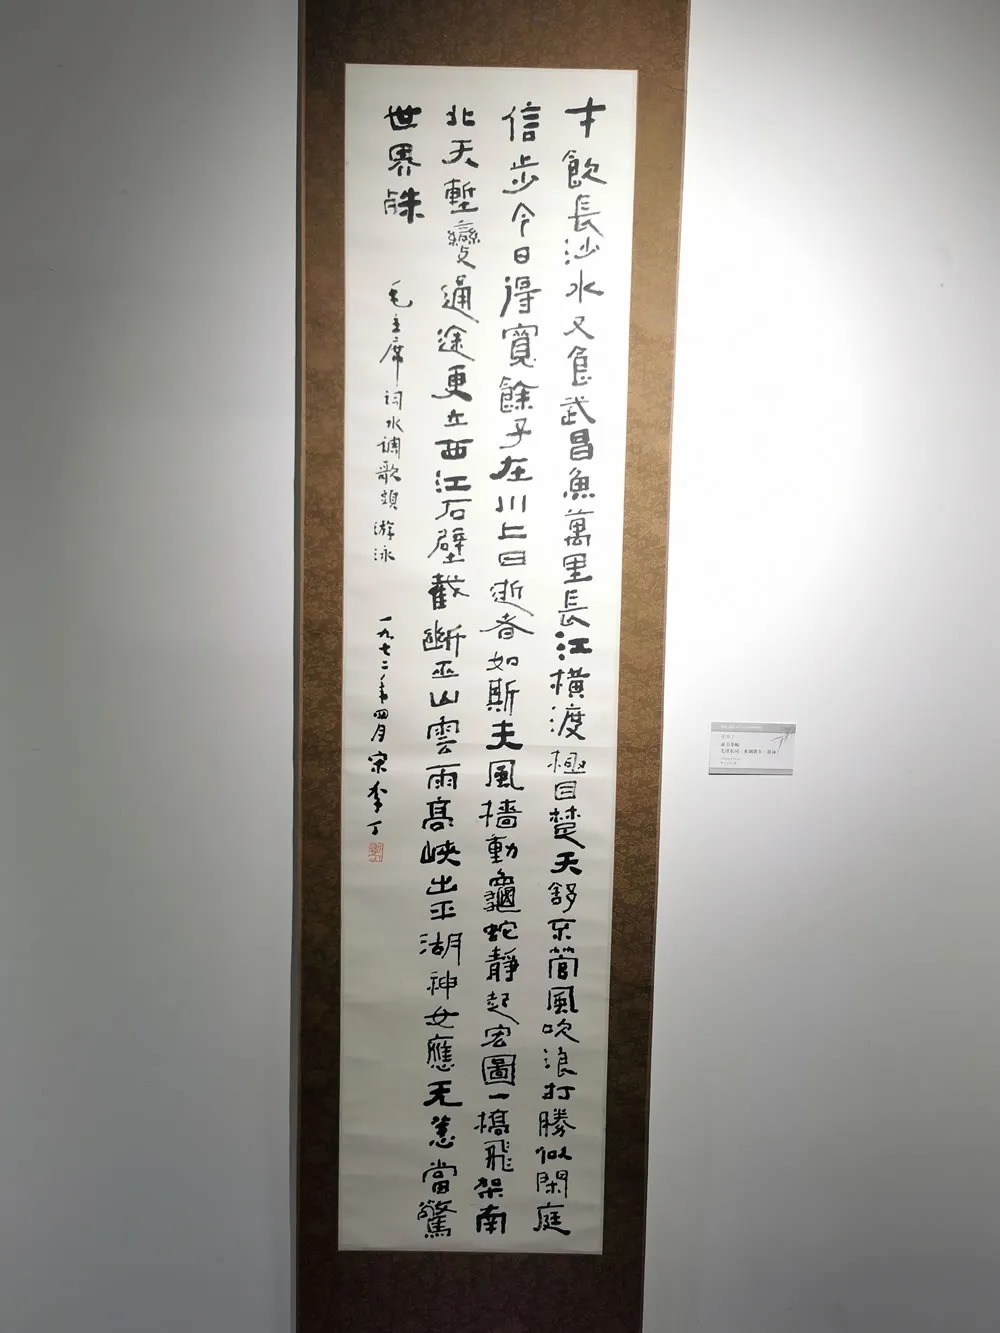 才飲長沙水又食武昌魚萬里長江橫渡極目楚天舒不管風吹浪打勝似閑庭
信步今日得寬餘子在川上曰逝者如斯夫風檣動龜蛇靜起宏圖一橋飛架南
北天塹變通途更立西江石壁截斷巫山雲雨高峽出平湖神女應无恙當驚
世界殊
毛主席詞水調歌頭游泳
一九七二年四月宋季丁